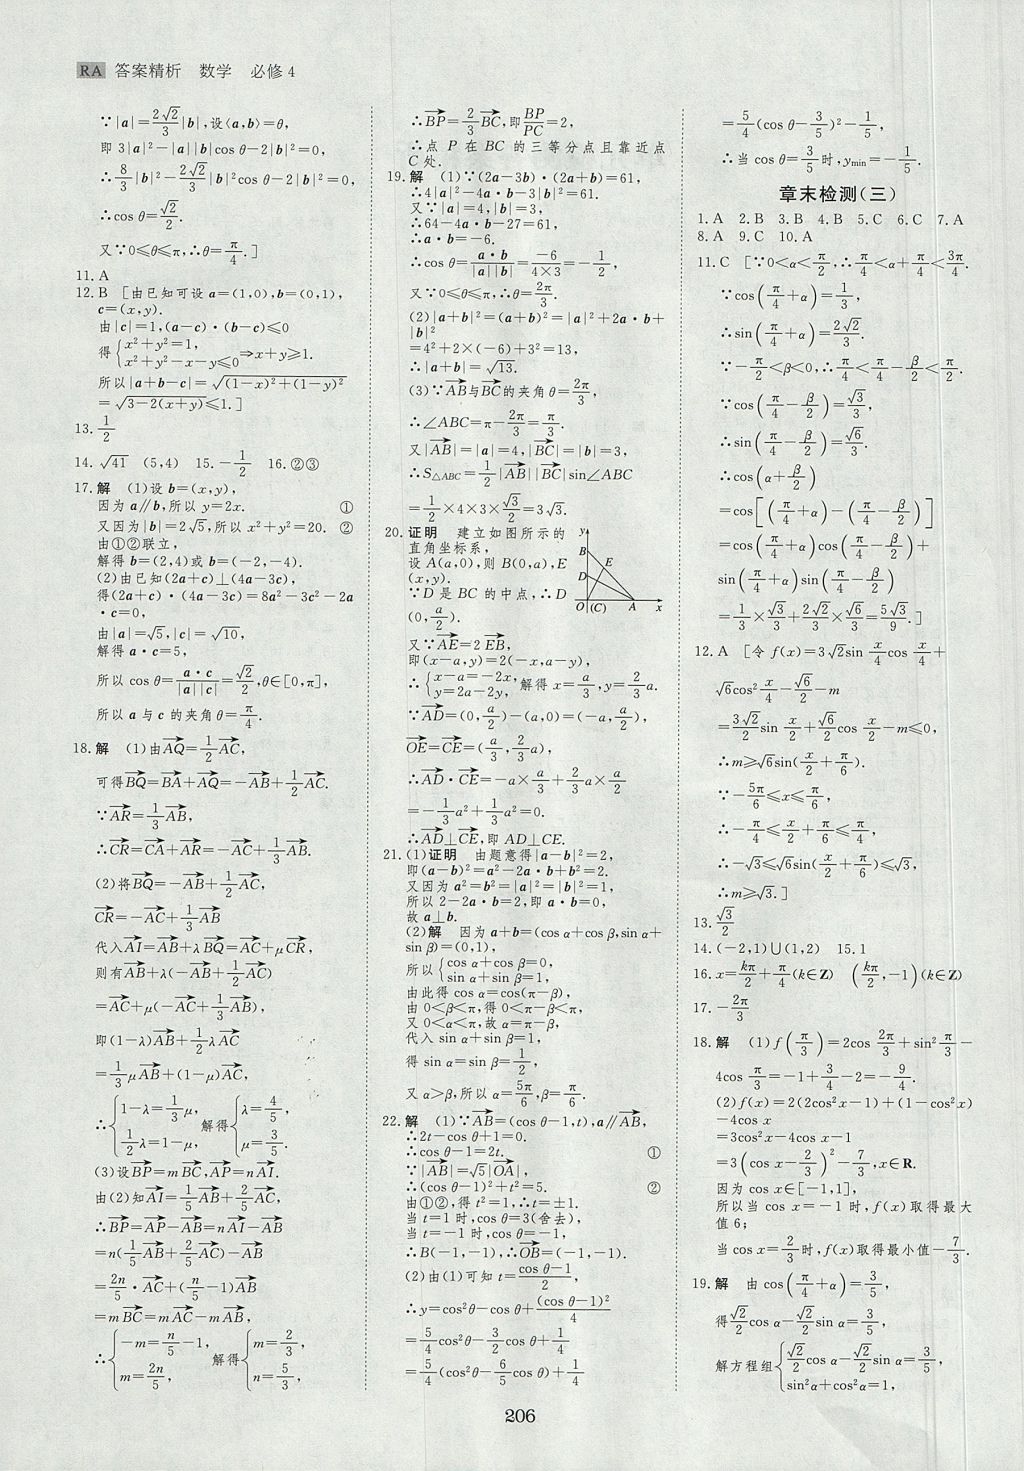 RA 答案精析 数学 必修4
∵|a|=\frac{2\sqrt{2}}{3}|b|,设⟨a,b⟩=θ,
即3|a|²-|a||b|cos θ-2|b|²=0,
∴\frac{8}{3}|b|²-\frac{2\sqrt{2}}{3}|b|²cos θ-2|b|²=0,
∴cos θ=\frac{\sqrt{2}}{2}.
又∵0≤θ≤π,∴θ=\frac{π}{4}.]
11.A
12.B [由已知可设a=(1,0),b=(0,1),
c=(x,y).
由|c|=1,(a-c)·(b-c)≤0
得{x²+y²=1,
x²+y²-x-y≤0⇒x+y≥1.
所以|a+b-c|=\sqrt{(1-x)²+(1-y)²}
=\sqrt{3-2(x+y)}≤1.]
13.\frac{1}{2}
14.\sqrt{41} (5,4) 15.-\frac{1}{2} 16.②③
17.解 (1)设b=(x,y),
因为a∥b,所以y=2x. ①
又因为|b|=2\sqrt{5},所以x²+y²=20. ②
由①②联立,
解得b=(2,4)或b=(-2,-4).
(2)由已知(2a+c)⊥(4a-3c),
得(2a+c)·(4a-3c)=8a²-3c²-2a
·c=0,
由|a|=\sqrt{5},|c|=\sqrt{10},
解得a·c=5,
所以cos θ=\frac{a·c}{|a||c|}=\frac{\sqrt{2}}{2},θ∈[0,π],
所以a与c的夹角θ=\frac{π}{4}.
18.解 (1)由\overrightarrow{AQ}=\frac{1}{2}\overrightarrow{AC},
可得\overrightarrow{BQ}=\overrightarrow{BA}+\overrightarrow{AQ}=-\overrightarrow{AB}+\frac{1}{2}\overrightarrow{AC}.
∵\overrightarrow{AR}=\frac{1}{3}\overrightarrow{AB},
∴\overrightarrow{CR}=\overrightarrow{CA}+\overrightarrow{AR}=-\overrightarrow{AC}+\frac{1}{3}\overrightarrow{AB}.
(2)将\overrightarrow{BQ}=-\overrightarrow{AB}+\frac{1}{2}\overrightarrow{AC},
\overrightarrow{CR}=-\overrightarrow{AC}+\frac{1}{3}\overrightarrow{AB}
代入\overrightarrow{AI}=\overrightarrow{AB}+λ\overrightarrow{BQ}=\overrightarrow{AC}+μ\overrightarrow{CR},
则有\overrightarrow{AB}+λ(-\overrightarrow{AB}+\frac{1}{2}\overrightarrow{AC})
=\overrightarrow{AC}+μ(-\overrightarrow{AC}+\frac{1}{3}\overrightarrow{AB}),
即(1-λ)\overrightarrow{AB}+\frac{1}{2}λ\overrightarrow{AC}
=\frac{1}{3}μ\overrightarrow{AB}+(1-μ)\overrightarrow{AC},
∴{1-λ=\frac{1}{3}μ,
\frac{1}{2}λ=1-μ, 解得{λ=\frac{4}{5},
μ=\frac{3}{5}.
(3)设\overrightarrow{BP}=m\overrightarrow{BC},\overrightarrow{AP}=n\overrightarrow{AI}.
由(2)知\overrightarrow{AI}=\frac{1}{5}\overrightarrow{AB}+\frac{2}{5}\overrightarrow{AC},
∴\overrightarrow{BP}=\overrightarrow{AP}-\overrightarrow{AB}=n\overrightarrow{AI}-\overrightarrow{AB}
=n(\frac{1}{5}\overrightarrow{AB}+\frac{2}{5}\overrightarrow{AC})-\overrightarrow{AB}
=\frac{2n}{5}·\overrightarrow{AC}+(\frac{n}{5}-1)\overrightarrow{AB}
=m\overrightarrow{BC}=m\overrightarrow{AC}-m\overrightarrow{AB},
∴{-m=\frac{n}{5}-1,
m=\frac{2n}{5}, 解得{m=\frac{2}{3},
n=\frac{5}{3},
∴\overrightarrow{BP}=\frac{2}{3}\overrightarrow{BC},即\frac{BP}{PC}=2,
∴点P在BC的三等分点且靠近点
C处.
19.解 (1)∵(2a-3b)·(2a+b)=61,
∴4|a|²-4a·b-3|b|²=61.
又∵|a|=4,|b|=3,
∴64-4a·b-27=61,
∴a·b=-6.
∴cos θ=\frac{a·b}{|a||b|}=\frac{-6}{4×3}=-\frac{1}{2},
又∵0≤θ≤π,∴θ=\frac{2π}{3}.
(2)|a+b|²=(a+b)²=|a|²+2a·b+
|b|²
=4²+2×(-6)+3²=13,
∴|a+b|=\sqrt{13}.
(3)∵\overrightarrow{AB}与\overrightarrow{BC}的夹角θ=\frac{2π}{3},
∴∠ABC=π-\frac{2π}{3}=\frac{π}{3}.
又|\overrightarrow{AB}|=|a|=4,|\overrightarrow{BC}|=|b|=3,
∴S△ABC=\frac{1}{2}|\overrightarrow{AB}||\overrightarrow{BC}|sin∠ABC
=\frac{1}{2}×4×3×\frac{\sqrt{3}}{2}=3\sqrt{3}.
20.证明 建立如图所示的
直角坐标系,
设A(a,0),则B(0,a),E
(x,y).
∵D是BC的中点,∴D
(0,\frac{a}{2}).
y
B
E
D
O (C) A x
又∵\overrightarrow{AE}=2\overrightarrow{EB},
即(x-a,y)=2(-x,a-y),
∴{x-a=-2x,
y=2a-2y, 解得x=\frac{a}{3},y=\frac{2}{3}a.
∵\overrightarrow{AD}=(0,\frac{a}{2})-(a,0)=(-a,\frac{a}{2}),
\overrightarrow{OE}=\overrightarrow{CE}=(\frac{a}{3},\frac{2}{3}a),
∴\overrightarrow{AD}·\overrightarrow{CE}=-a×\frac{a}{3}+\frac{2}{3}a×\frac{a}{2}
=-\frac{1}{3}a²+\frac{1}{3}a²=0.
∴\overrightarrow{AD}⊥\overrightarrow{CE},即AD⊥CE.
21.(1)证明 由题意得|a-b|²=2,
即(a-b)²=a²-2a·b+b²=2.
又因为a²=b²=|a|²=|b|²=1,
所以2-2a·b=2,即a·b=0,
故a⊥b.
(2)解 因为a+b=(cos α+cos β,sin α+
sin β)=(0,1),
所以{cos α+cos β=0,
sin α+sin β=1,
由此得cos α=cos(π-β),
由0<β<π,得0<π-β<π,
又0<α<π,故α=π-β.
代入sin α+sin β=1,
得sin α=sin β=\frac{1}{2},
又α>β,所以α=\frac{5π}{6},β=\frac{π}{6}.
22.解 (1)∵\overrightarrow{AB}=(cos θ-1,t),a∥\overrightarrow{AB},
∴2t-cos θ+1=0.
∴cos θ-1=2t. ①
∵|\overrightarrow{AB}|=\sqrt{5}|\overrightarrow{OA}|,
∴(cos θ-1)²+t²=5. ②
由①②,得t²=1,∴t=±1.
当t=1时,cos θ=3(舍去),
当t=-1时,cos θ=-1,
∴B(-1,-1),∴\overrightarrow{OB}=(-1,-1).
(2)由(1)可知t=\frac{cos θ-1}{2},
∴y=cos²θ-cos θ+\frac{(cos θ-1)²}{4}
=\frac{5}{4}cos²θ-\frac{3}{2}cos θ+\frac{1}{4}
=\frac{5}{4}(cos²θ-\frac{6}{5}cos θ)+\frac{1}{4}
=\frac{5}{4}(cos θ-\frac{3}{5})²-\frac{1}{5},
∴当cos θ=\frac{3}{5}时,y_{min}=-\frac{1}{5}.
章末检测(三)
1.A 2.B 3.B 4.B 5.C 6.C 7.A
8.A 9.C 10.A
11.C [∵0<α<\frac{π}{2},∴\frac{π}{4}<α+\frac{π}{4}<\frac{3π}{4}.
∵cos(\frac{π}{4}+α)=\frac{1}{3},
∴sin(\frac{π}{4}+α)=\frac{2\sqrt{2}}{3}.
∵-\frac{π}{2}<β<0,∴\frac{π}{4}<\frac{π}{4}-\frac{β}{2}<\frac{π}{2}.
∵cos(\frac{π}{4}-\frac{β}{2})=\frac{\sqrt{3}}{3},
∴sin(\frac{π}{4}-\frac{β}{2})=\frac{\sqrt{6}}{3}.
∴cos(α+\frac{β}{2})
=cos[(\frac{π}{4}+α)-(\frac{π}{4}-\frac{β}{2})]
=cos(\frac{π}{4}+α)cos(\frac{π}{4}-\frac{β}{2})+
sin(\frac{π}{4}+α)sin(\frac{π}{4}-\frac{β}{2})
=\frac{1}{3}×\frac{\sqrt{3}}{3}+\frac{2\sqrt{2}}{3}×\frac{\sqrt{6}}{3}=\frac{5\sqrt{3}}{9}.]
12.A [令f(x)=3\sqrt{2}sin\frac{x}{4}cos\frac{x}{4}+
\sqrt{6}cos²\frac{x}{4}-\frac{\sqrt{6}}{2}-m
=\frac{3\sqrt{2}}{2}sin\frac{x}{2}+\frac{\sqrt{6}}{2}cos\frac{x}{2}-m≤0,
∴m≥\sqrt{6}sin(\frac{x}{2}+\frac{π}{6}).
∵-\frac{5π}{6}≤x≤\frac{π}{6},
∴-\frac{π}{4}≤\frac{x}{2}+\frac{π}{6}≤\frac{π}{4},
∴-\sqrt{3}≤\sqrt{6}sin(\frac{x}{2}+\frac{π}{6})≤\sqrt{3},
∴m≥\sqrt{3}.]
13.\frac{\sqrt{3}}{2}
14.(-2,1)∪(1,2) 15.1
16.x=\frac{kπ}{2}+\frac{π}{4}(k∈Z) (\frac{kπ}{2},-1)(k∈Z)
17.-\frac{2π}{3}
18.解 (1)f(\frac{π}{3})=2cos\frac{2π}{3}+sin²\frac{π}{3}-
4cos\frac{π}{3}=-1+\frac{3}{4}-2=-\frac{9}{4}.
(2)f(x)=2(2cos²x-1)+(1-cos²x)
-4cos x
=3cos²x-4cos x-1
=3(cos x-\frac{2}{3})²-\frac{7}{3},x∈R.
因为cos x∈[-1,1],
所以当cos x=-1时,f(x)取得最大
值6;
当cos x=\frac{2}{3}时,f(x)取得最小值-\frac{7}{3}.
19.解 由cos(\frac{π}{4}+α)=\frac{3}{5},
得\frac{\sqrt{2}}{2}cos α-\frac{\sqrt{2}}{2}sin α=\frac{3}{5},
解方程组{\frac{\sqrt{2}}{2}cos α-\frac{\sqrt{2}}{2}sin α=\frac{3}{5},
sin²α+cos²α=1,
206